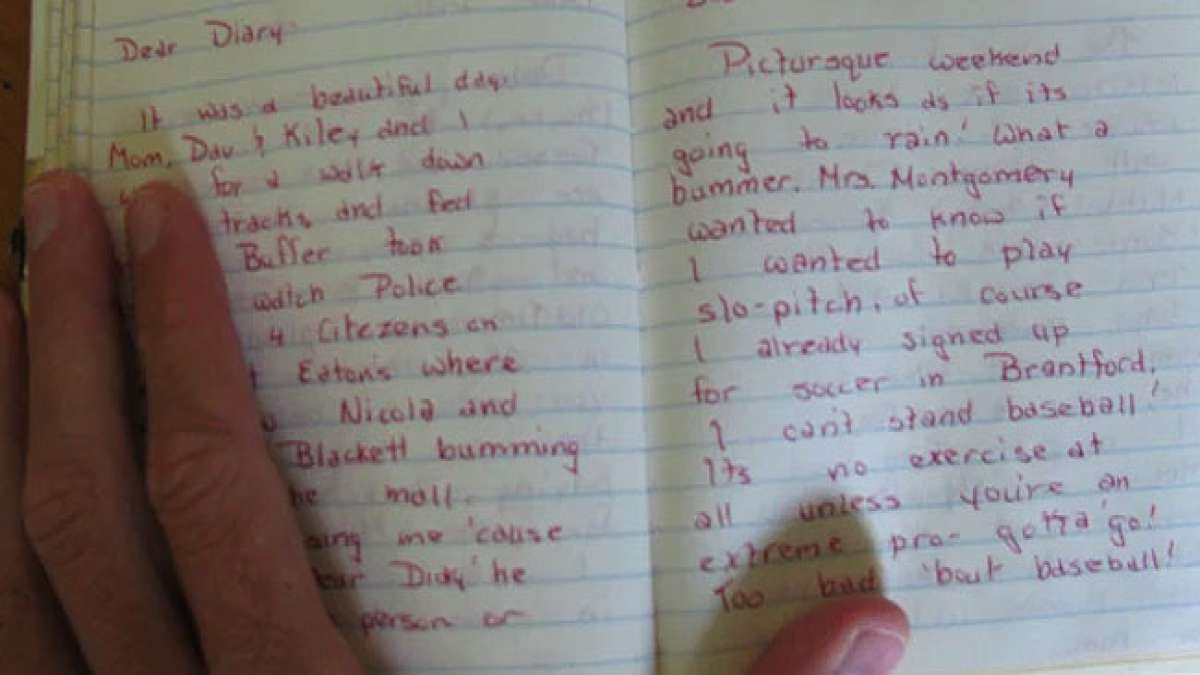 Dear Diary
It was a beautiful day.
Mom, Dav & Kiley and I
for a walk down
tracks and fed
Buffer took
watch Police
4 Citezens on
Eaton's where
Nicola and
Blackett bumming
he mall.
me 'cause
Diary he
person or
Picturaque weekend
and it looks as if its
going to rain! What a
bummer. Mrs. Montgomery
wanted to know if
I wanted to play
slo-pitch, of course
I already signed up
for soccer in Brantford.
I can't stand baseball!
Its no exercise at
all unless you're an
extreme pro- gotta go!
Too bad 'bout baseball!